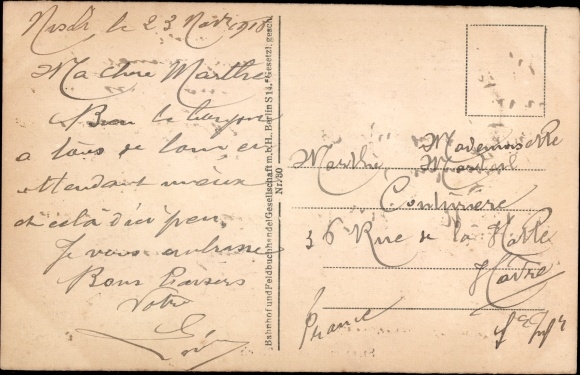 le 23 Nov 1918
Ma chère Marthe
Bien le bonjour
à tous de loin en
attendant mieux
et cela d'ici peu
Je vous embrasse
Bons Baisers
Votre
Bahnhof und Feldbuchhandel Gesellschaft m.b.H. Berlin S 14. * Gesetzl. gesch.
Nr. 30
Mademoiselle
Marthe
Couturière
36 Rue de la Halle
Havre
France